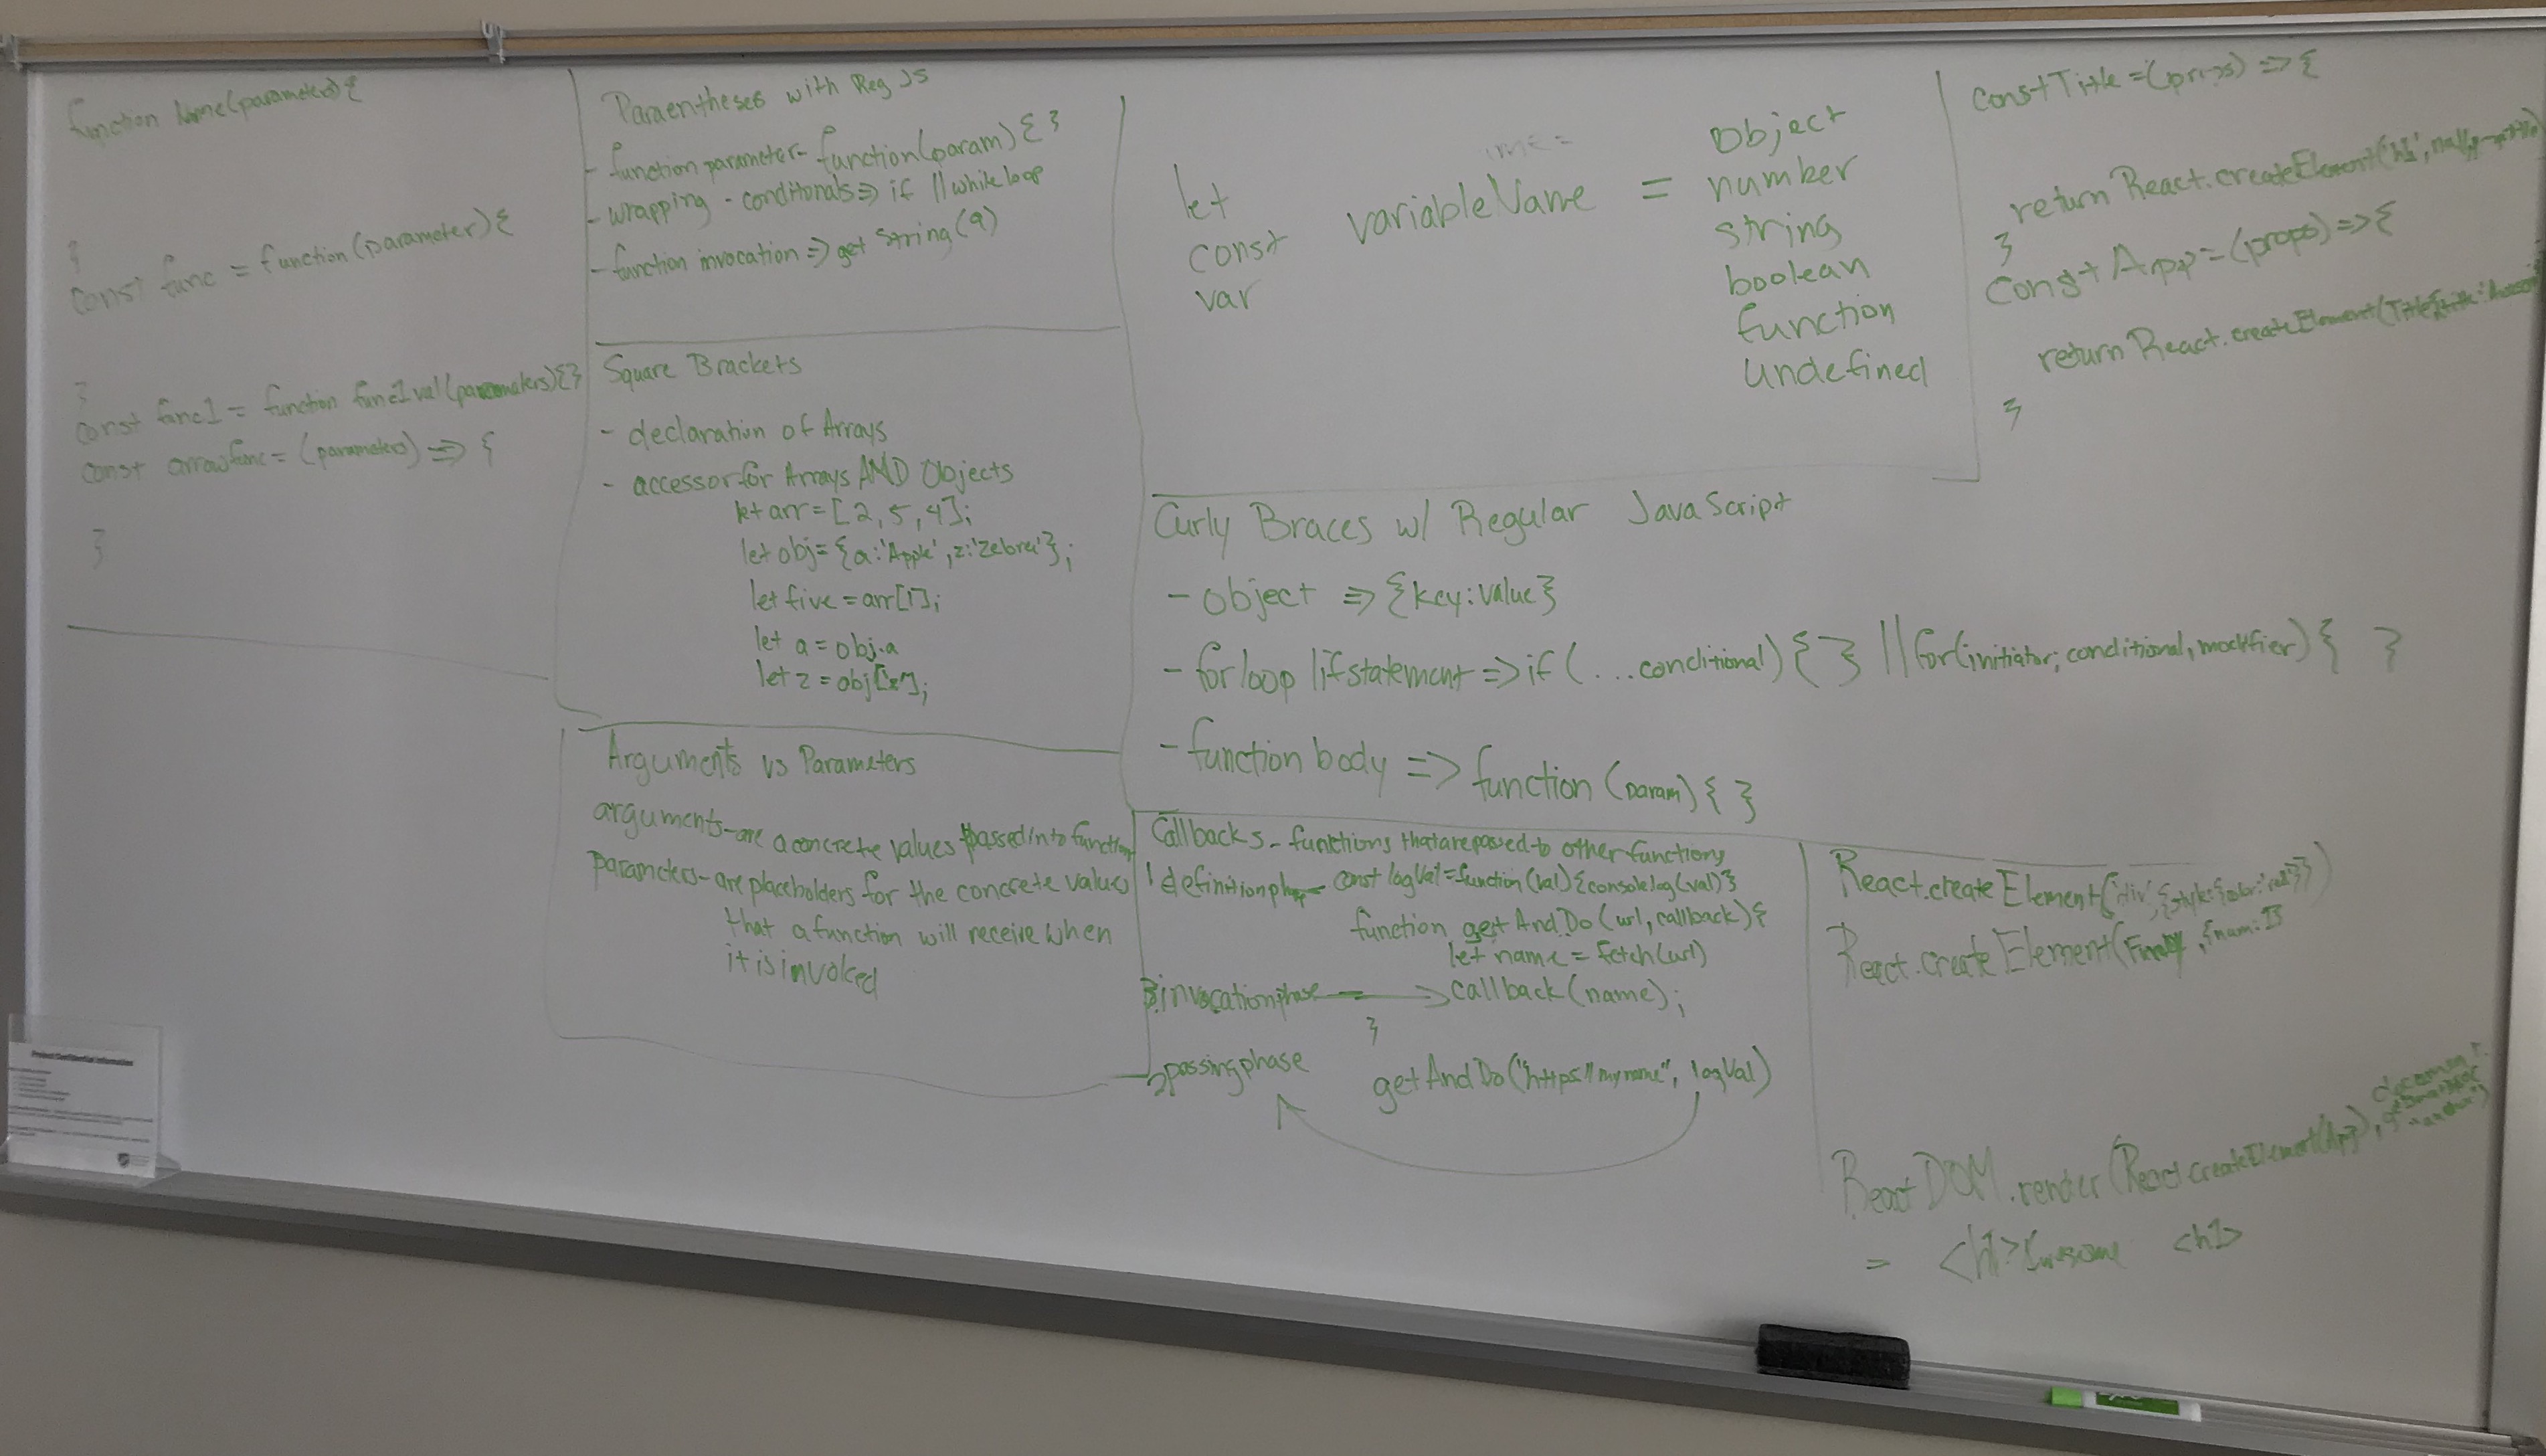 function Name(parameters){
}
const func = function(parameter){
}
const func1 = function func1val(parameters){}
const arrowfunc = (parameters) => {
}
Paraentheses with Reg JS
- function parameter - function(param){ }
- wrapping - conditionals => if || while loop
- function invocation => get String(a)
Square Brackets
- declaration of Arrays
- accessor for Arrays AND Objects
let arr = [2, 5, 4];
let obj = {a:'Apple', z:'Zebra'};
let five = arr[1];
let a = obj.a
let z = obj["z"];
Arguments vs Parameters
arguments - are a concrete values passed into function
parameters - are placeholders for the concrete values
that a function will receive when
it is invoked
let
const
var
variableName =
Object
number
string
boolean
function
undefined
Curly Braces w/ Regular JavaScript
- object => {key:value}
- for loop | if statement => if (...conditional) { } || for(initiator; conditional, modifier) { }
- function body => function (param) { }
Callbacks - functions that are passed to other functions
1 definition phase - const logVal = function(val){console.log(val)}
function get And Do (url, callback){
let name = fetch(url)
3 invocation phase -> callback(name);
}
2 passing phase getAndDo("https//myname", logVal)
const Title = (props) => {
return React.createElement('h1', null,
}
Const App = (props) => {
return React.createElement(Title, {title: 'Awesom
}
React.createElement('div', {style:{color:'red'}})
React.createElement( , {num: 1}
ReactDOM.render(React.createElement(App),
= <h1>Awesome <h1>